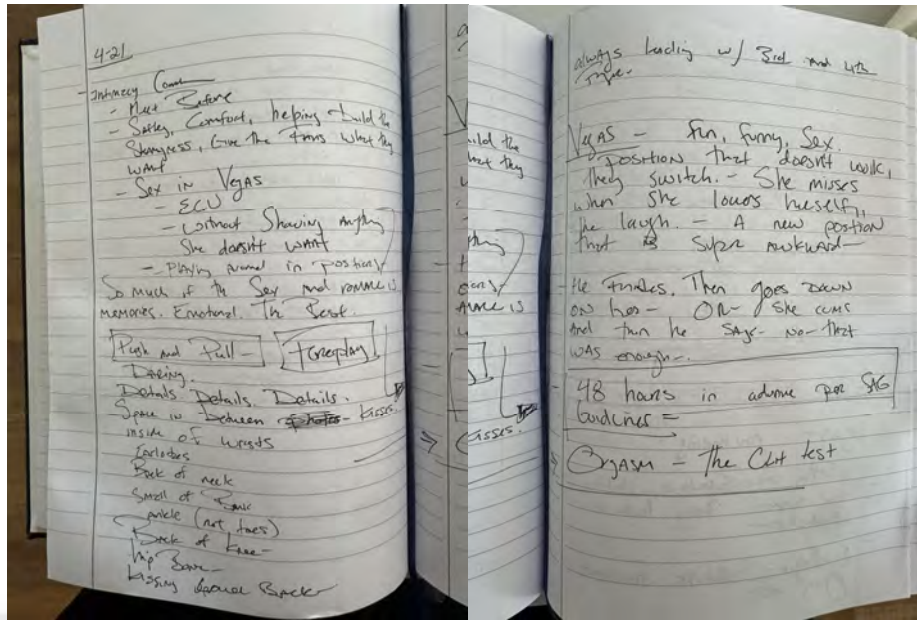 4-21
- Intimacy Coach
- Meet Before
- Safety, Comfort, helping build the
Storyness, Give the Fans what they
want
- Sex in Vegas
- ECU
- without Showing Anything
She doesn't want
- Playing around in positions
So much of the Sex and romance is
memories. Emotional. The Best.
Push and Pull - Foreplay
Daring.
Details Details. Details.
Space in Between kisses.
inside of wrists
Earlobes
Back of neck
Small of Back
ankle (not toes)
Back of knee -
hip Bone -
kissing lower Back
always leading w/ 3rd and 4th
Vegas - Fun, funny, Sex.
Position that doesn't work,
they switch. - She misses
when she lowers herself,
he laugh. - A new postion
that is Super Awkward -
- He finishes. Then goes Down
ON her - OR - She cums
And then he SAys - No - that
was enough -.
48 hours in advance per SAG
Guidlines =
Orgasm - The Clit test